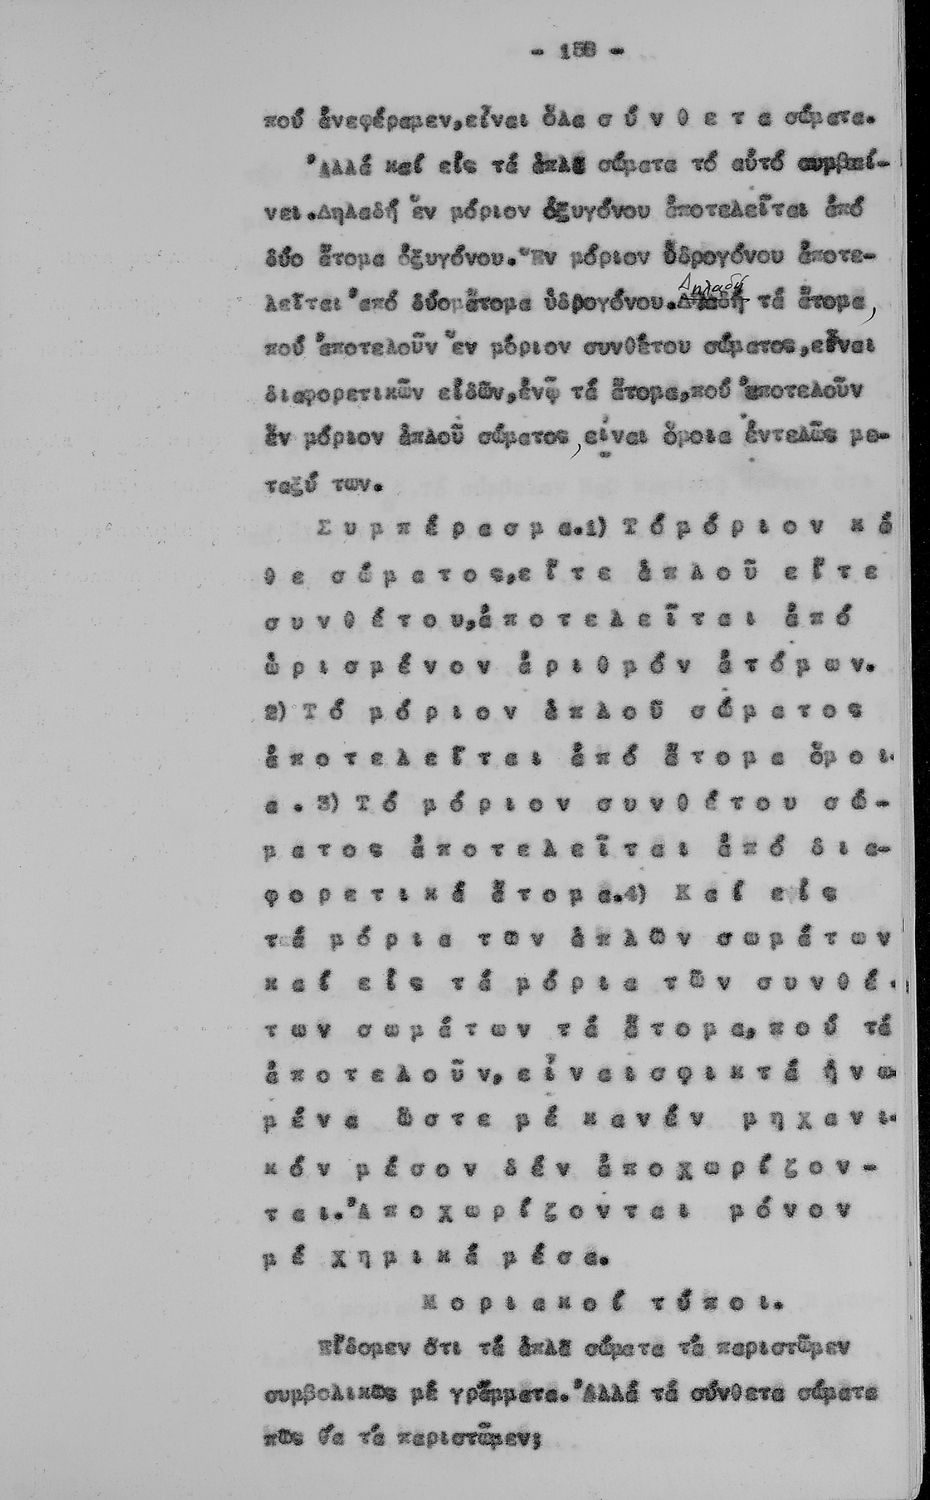 - 158 -
πού ἀνεφέραμεν,εἶναι ὅλα σ ύ ν θ ε τ α σώματα.
Ἀλλά καί εἰς τά ἁπλᾶ σώματα τό αὐτό συμβαί-
νει.Δηλαδή ἕν μόριον ὀξυγόνου ἀποτελεῖται ἀπό
δύο ἄτομα ὀξυγόνου.Ἕν μόριον ὑδρογόνου ἀποτε-
λεῖται ἀπό δύο ἄτομα ὑδρογόνου.Δηλαδή τά ἄτομα,
πού ἀποτελοῦν ἕν μόριον συνθέτου σώματος,εἶναι
διαφορετικῶν εἰδῶν,ἐνῷ τά ἄτομα,πού ἀποτελοῦν
ἕν μόριον ἁπλοῦ σώματος,εἶναι ὅμοια ἐντελῶς με-
ταξύ των.
Σ υ μ π έ ρ α σ μ α.1) Τ ό μ ό ρ ι ο ν κ ά
θ ε σ ώ μ α τ ο ς,ε ἴ τ ε ἁ π λ ο ῦ ε ἴ τ ε
σ υ ν θ έ τ ο υ,ἀ π ο τ ε λ ε ῖ τ α ι ἀ π ό
ὡ ρ ι σ μ έ ν ο ν ἀ ρ ι θ μ ό ν ἀ τ ό μ ω ν.
2) Τ ό μ ό ρ ι ο ν ἁ π λ ο ῦ σ ώ μ α τ ο ς
ἀ π ο τ ε λ ε ῖ τ α ι ἀ π ό ἄ τ ο μ α ὅ μ ο ι-
α . 3) Τ ό μ ό ρ ι ο ν σ υ ν θ έ τ ο υ σ ώ -
μ α τ ο ς ἀ π ο τ ε λ ε ῖ τ α ι ἀ π ό δ ι α-
φ ο ρ ε τ ι κ ά ἄ τ ο μ α.4) Κ α ί ε ἰ ς
τ ά μ ό ρ ι α τ ῶ ν ἁ π λ ῶ ν σ ω μ ά τ ω ν
κ α ί ε ἰ ς τ ά μ ό ρ ι α τ ῶ ν σ υ ν θ έ -
τ ω ν σ ω μ ά τ ω ν τ ά ἄ τ ο μ α,π ο ύ τά
ἀ π ο τ ε λ ο ῦ ν,ε ἶ ν α ι σ φ ι κ τ ά ἡ ν ω-
μ έ ν α ὥ σ τ ε μ έ κ α ν έ ν μ η χ α ν ι-
κ ό ν μ έ σ ο ν δ έ ν ἀ π ο χ ω ρ ί ζ ο ν -
τ α ι.Ἀ π ο χ ω ρ ί ζ ο ν τ α ι μ ό ν ο ν
μ έ χ η μ ι κ ά μ έ σ α.
Μ ο ρ ι α κ ο ί τ ύ π ο ι.
Εἴδομεν ὅτι τά ἁπλᾶ σώματα τά παριστῶμεν
συμβολικῶς μέ γράμματα.Ἀλλά τά σύνθετα σώματα
πῶς θά τά παριστῶμεν;